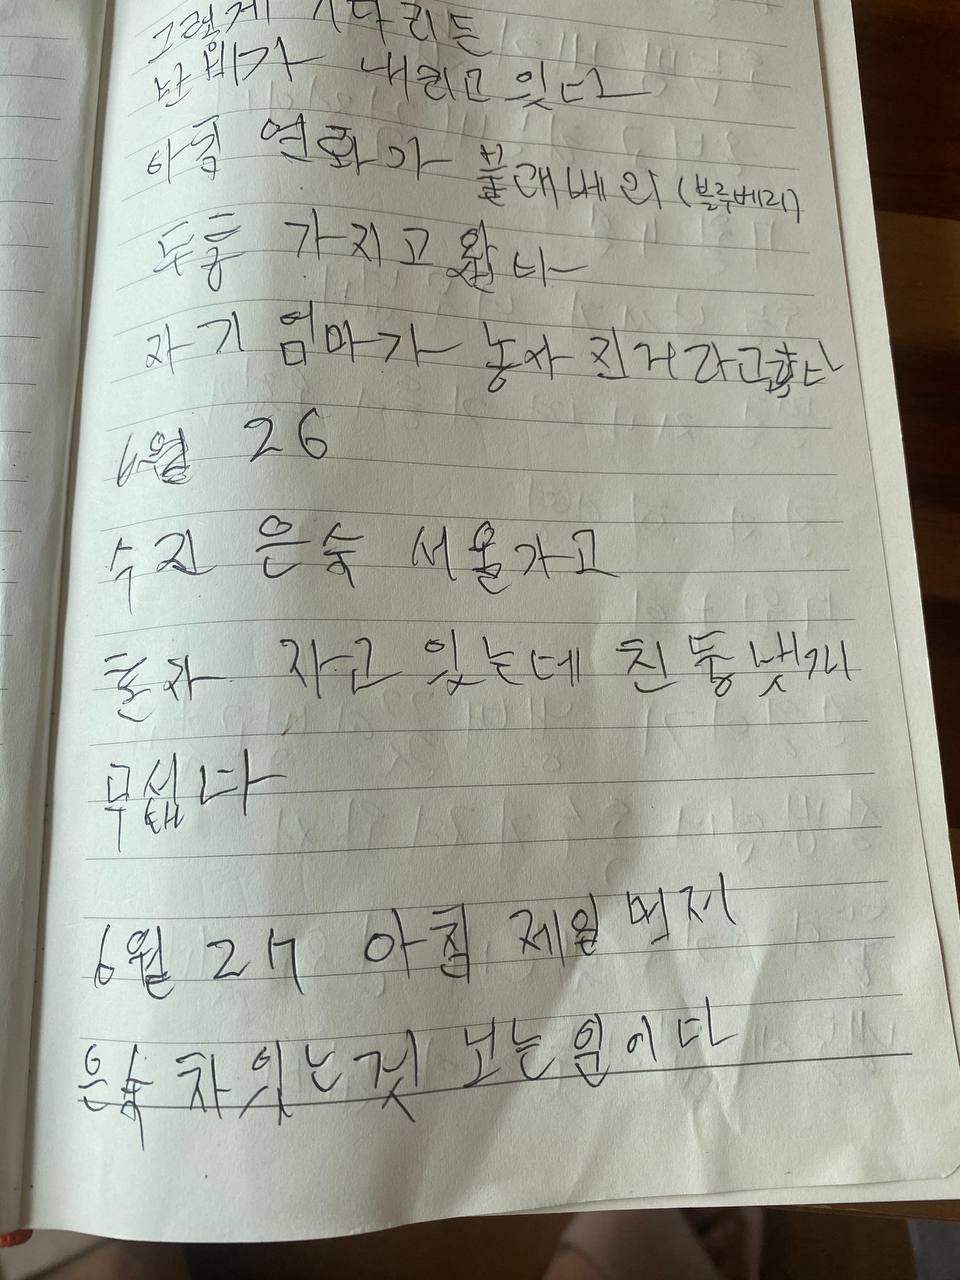 그렇게 기다리든
단비가 내리고 잇다
아침 연화가 블래베리 (블루베리)
두룸 가지고 왔다
자기 엄마가 농사 진거라고한다
6월 26
수진 은숙 서울가고
혼자 자고 있는데 친둥냇개
무섭다
6월 27 아침 제일 먼저
은숙 차 있는것 보는일이다